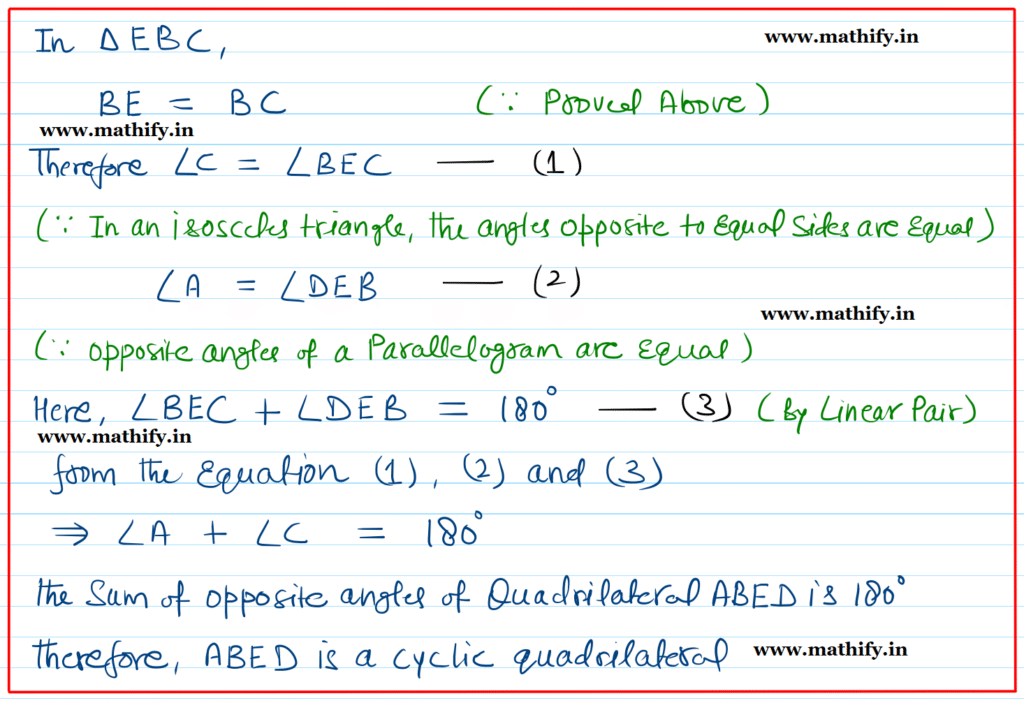 In ΔEBC,
www.mathify.in
BE = BC (∵ Proved Above)
www.mathify.in
Therefore ∠C = ∠BEC — (1)
(∵ In an isosceles triangle, the angles opposite to Equal Sides are Equal)
∠A = ∠DEB — (2)
www.mathify.in
(∵ opposite angles of a Parallelogram are Equal)
Here, ∠BEC + ∠DEB = 180° — (3) (By Linear Pair)
www.mathify.in
from the Equation (1), (2) and (3)
⇒ ∠A + ∠C = 180°
the Sum of opposite angles of Quadrilateral ABED is 180°
therefore, ABED is a cyclic quadrilateral www.mathify.in